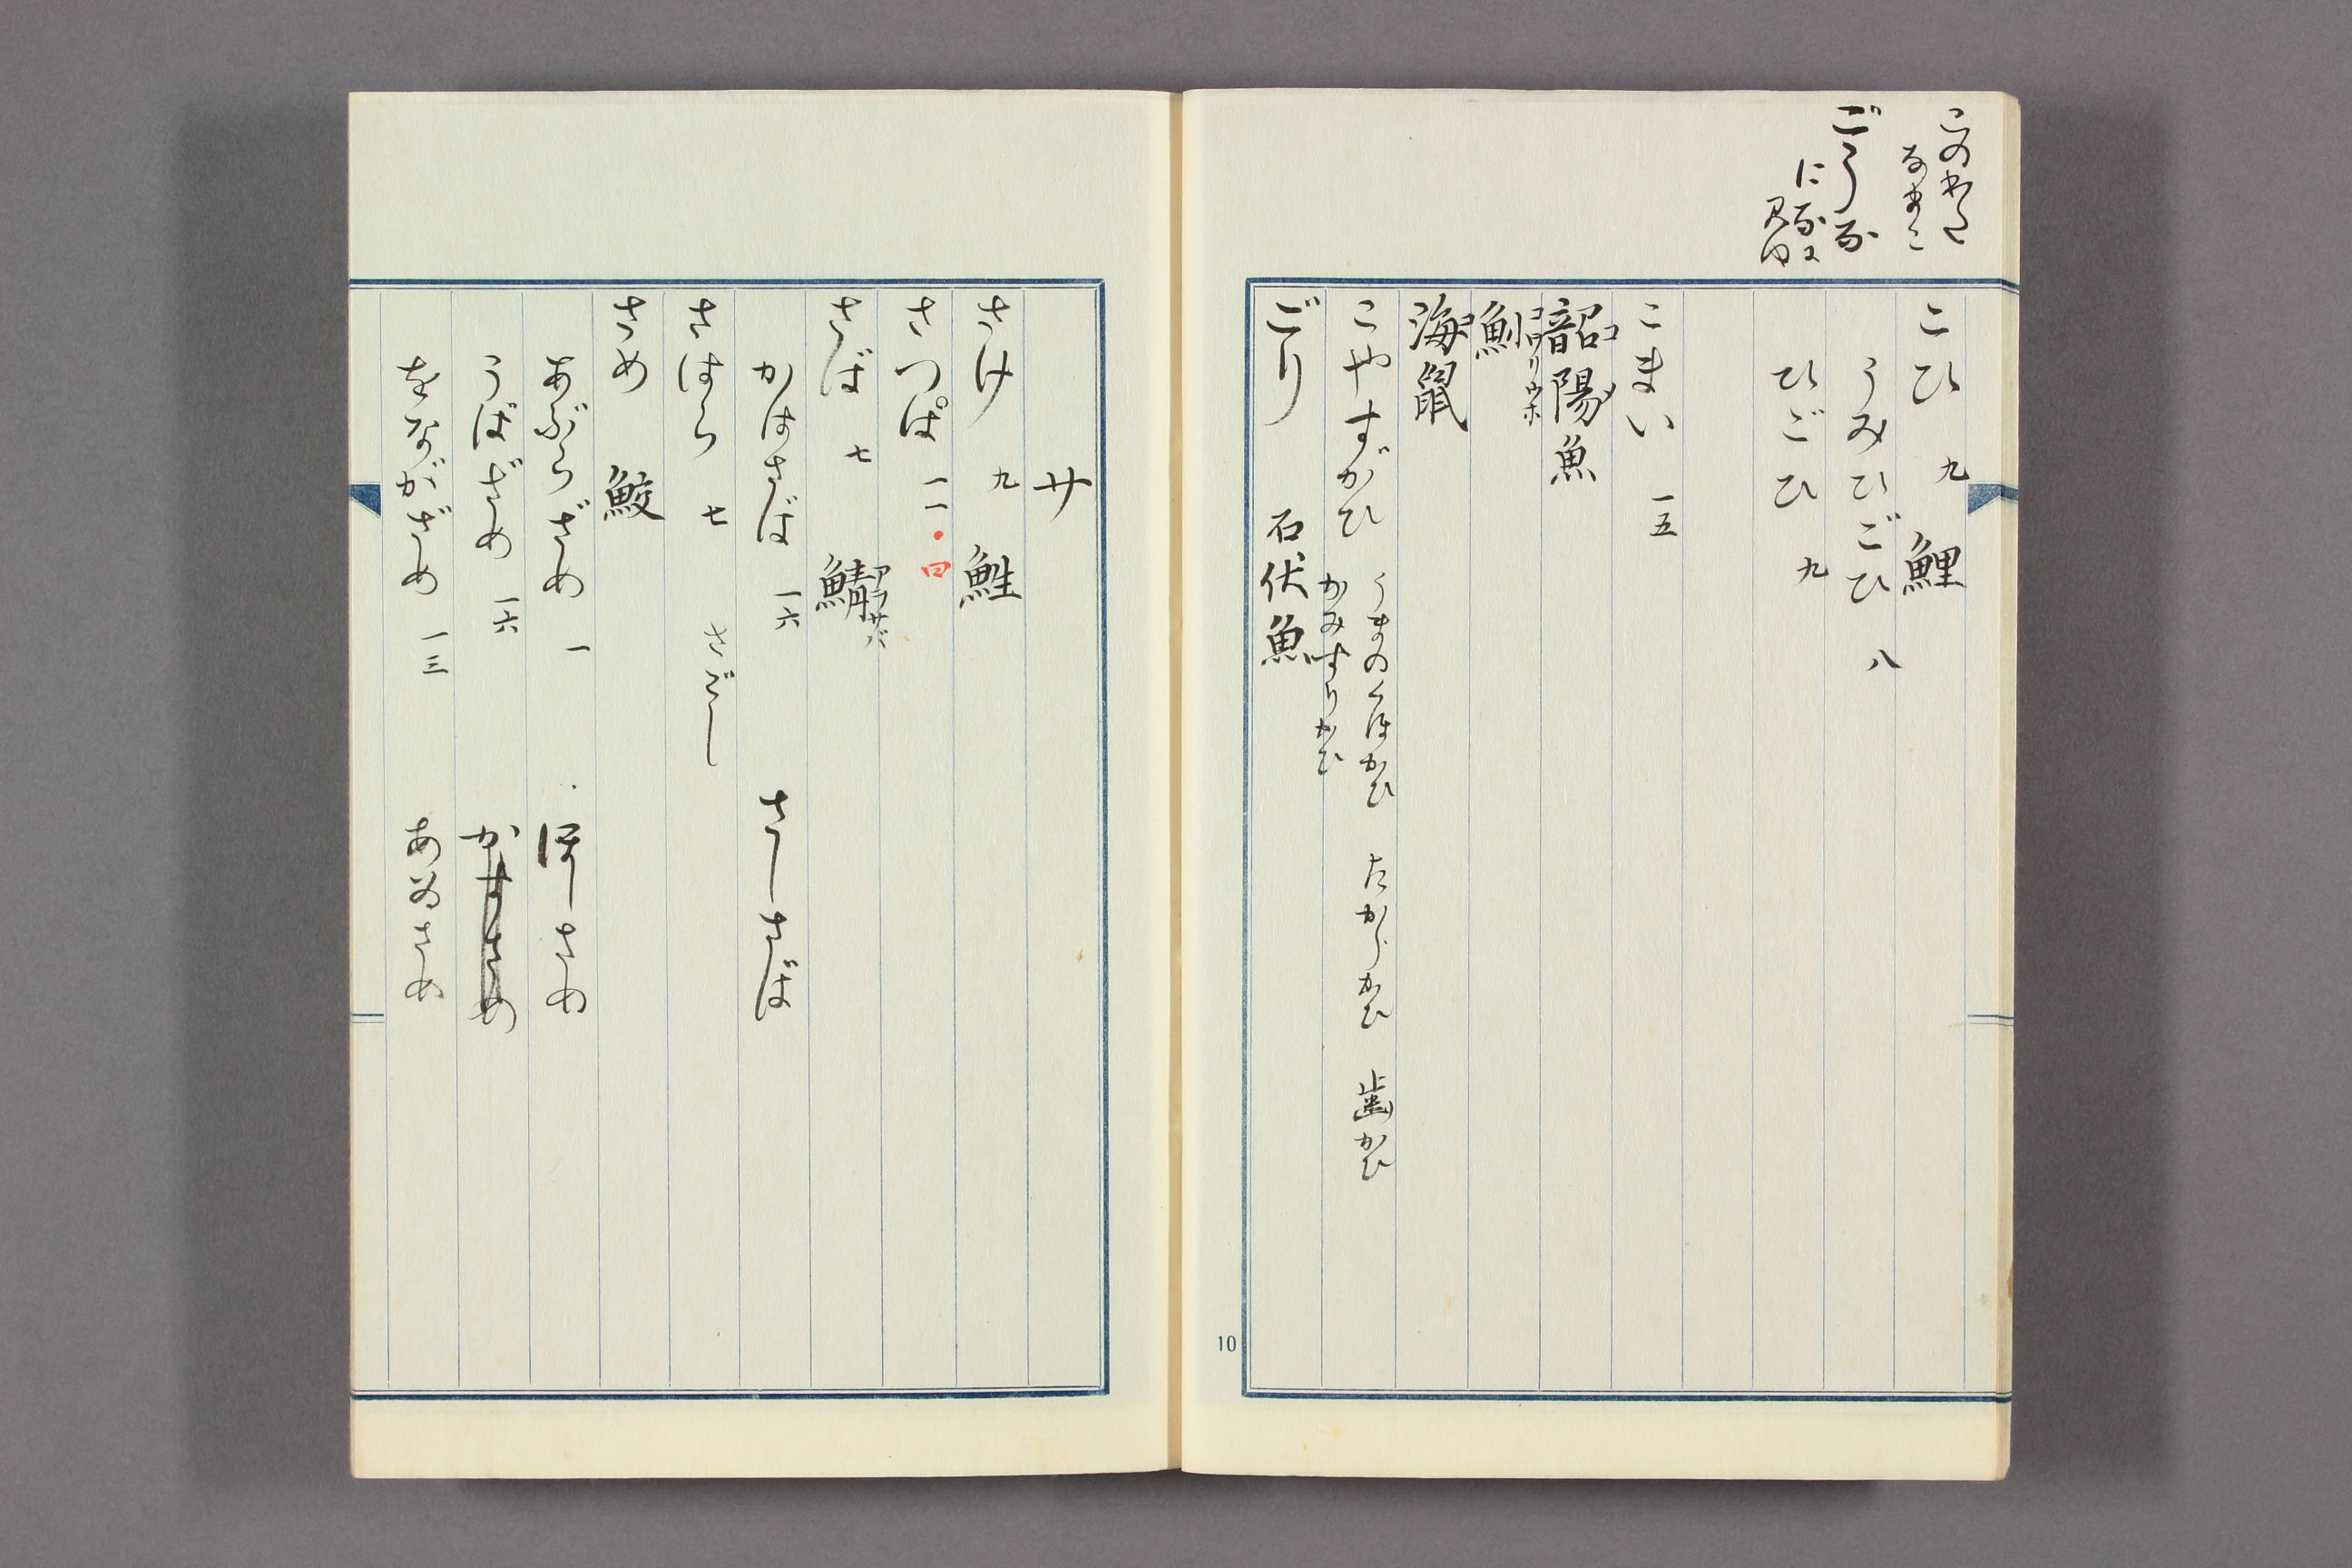 このわた
なまこ
ごうな
になに
見ゆ
こひ 九 鯉
うみひごひ 八
ひごひ 九
こまい 一五
韶陽魚 コ
鮤 コロリウホ
海鼠 コ
こやすがひ うまのくぼかひ たからかひ 歯かひ
かみすりかひ
ごり 石伏魚
10
サ
さけ 九 鮏
さつぱ 一一・四
さば 七 鯖 アヲサバ
かはさば 一六 さしさば
さはら 七 さごし
さめ 鮫
あぶらざめ 一 ほしさめ
うばざめ 一六 かすさめ
をながざめ 一三 あゐさめ